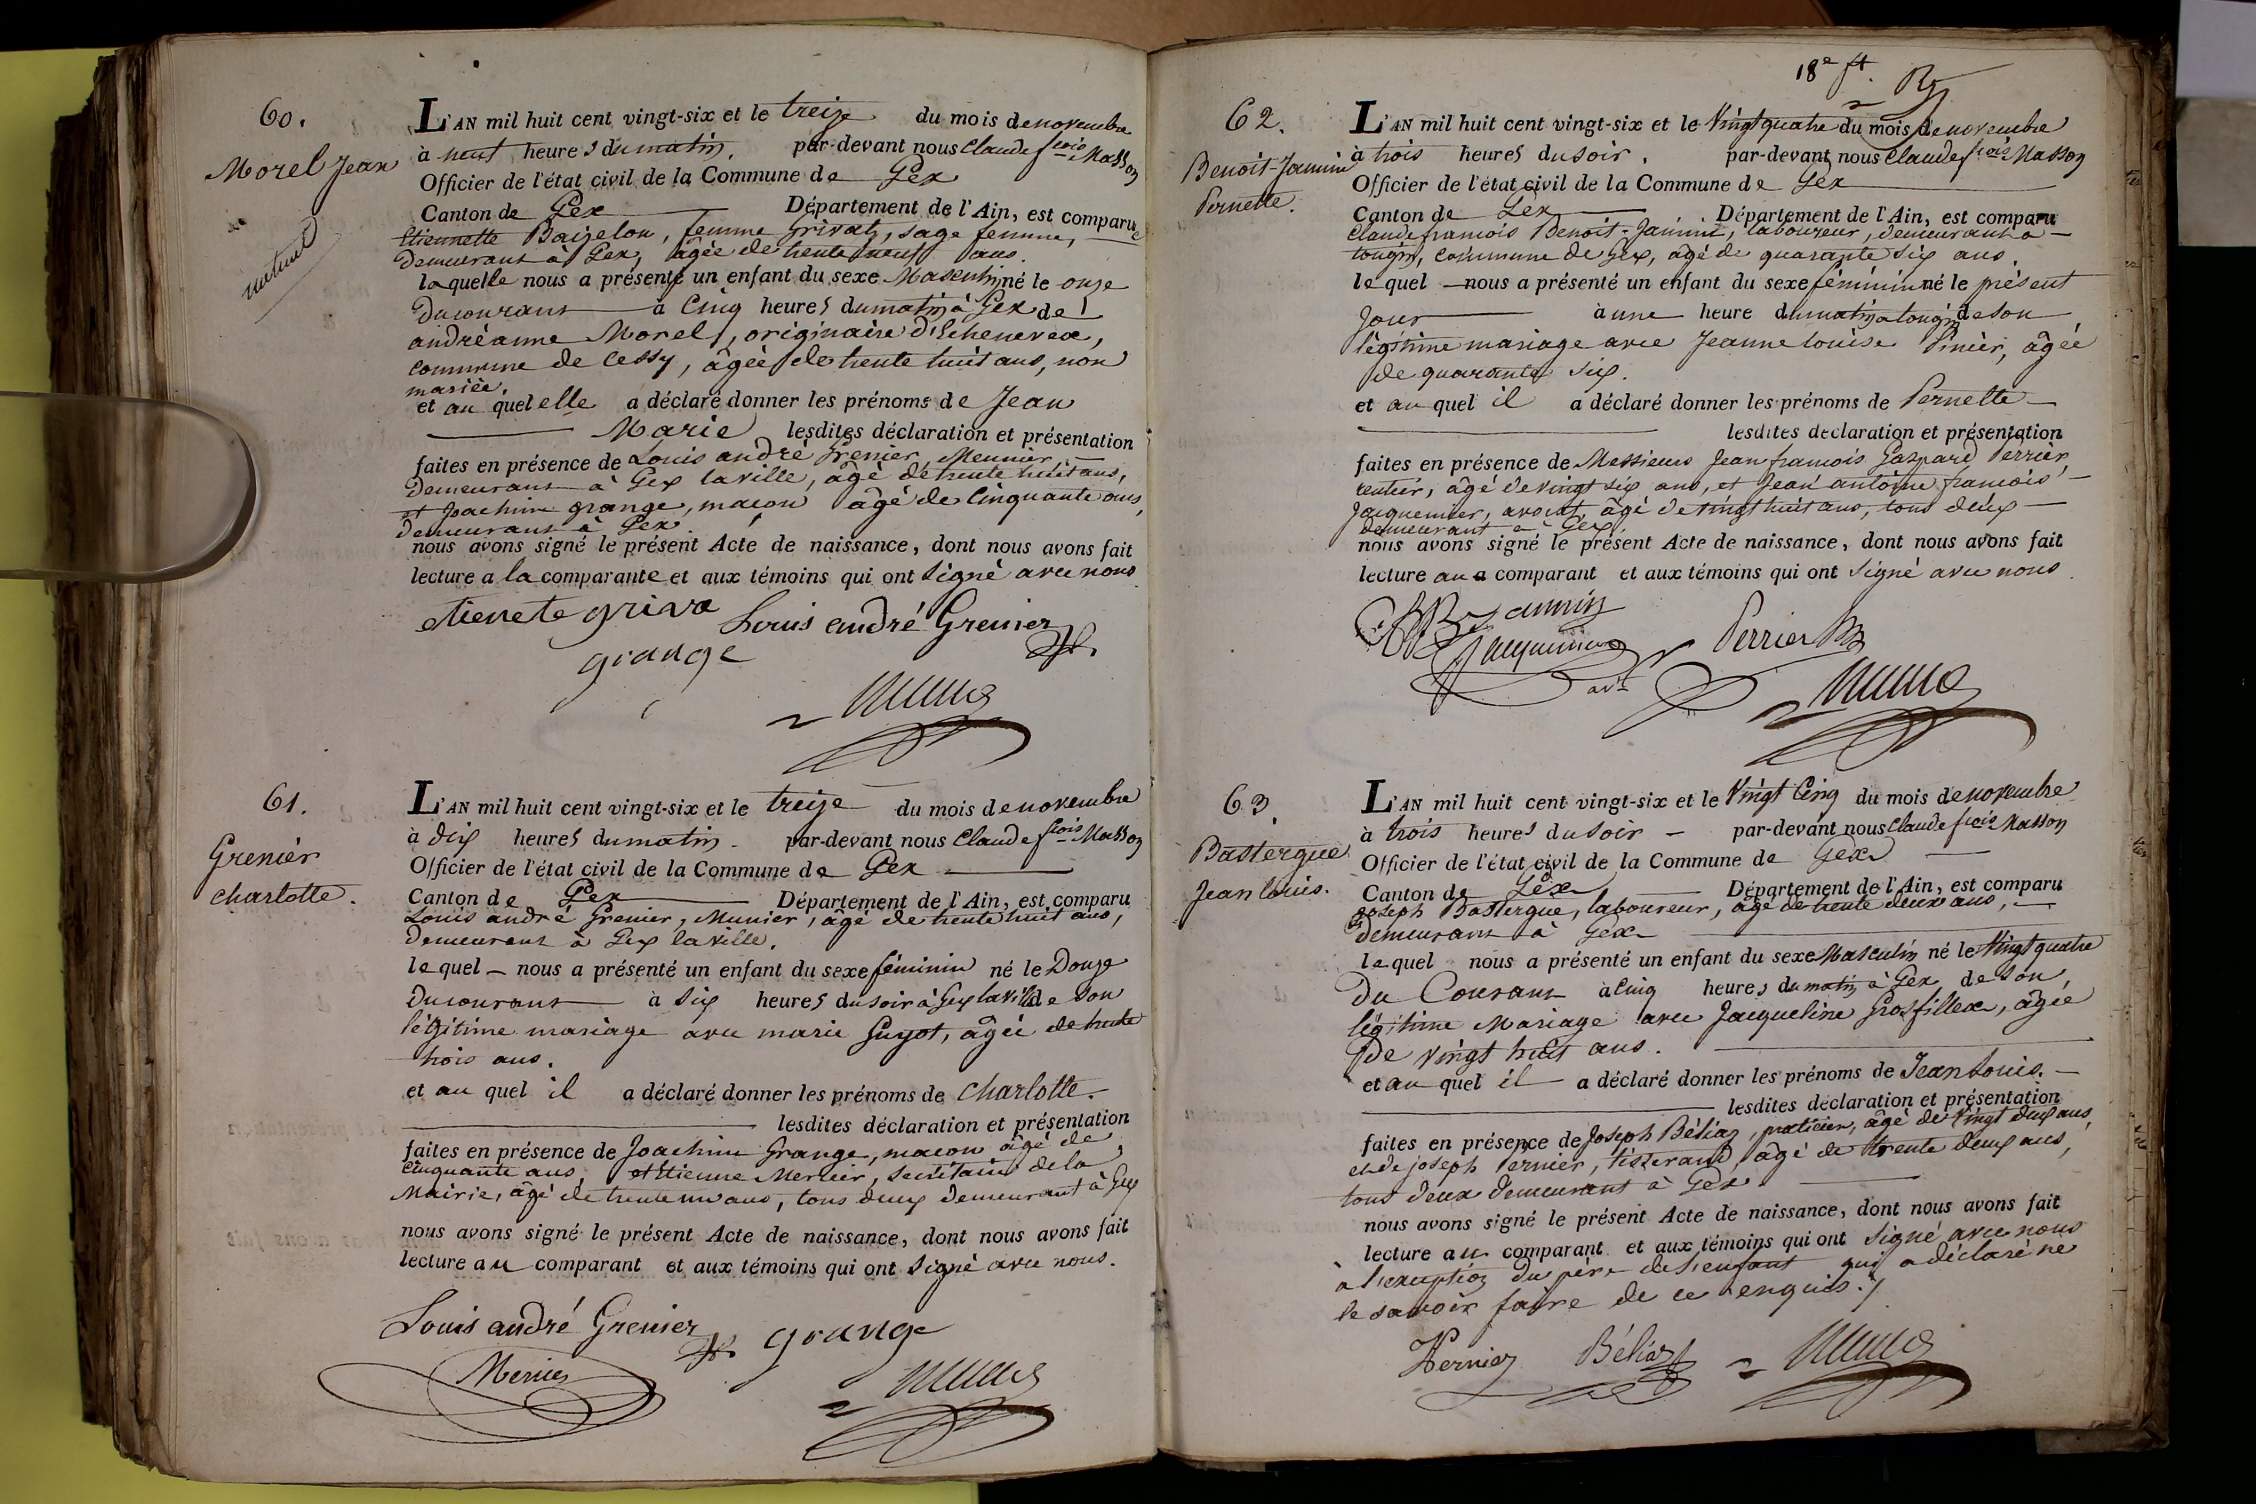 60.
Morel Jean
naturel
L'AN mil huit cent vingt-six et le treize du mois de novembre
à neuf heures du matin. par-devant nous Claude fcois Masson
Officier de l'état civil de la Commune de Gex
Canton de Gex Département de l'Ain, est comparue
Etiennette Baizelon, femme Grivat, sage femme,
demeurant à Gex, âgée de trente neuf ans.
laquelle nous a présenté un enfant du sexe Masculin né le onze
du courant à Cinq heures du matin à Gex de
andréanne Morel, originaire d'Echenevex,
commune de Cessy, âgée de trente huit ans, non
mariée.
et au quel elle a déclaré donner les prénoms de Jean
Marie lesdites déclaration et présentation
faites en présence de Louis andré Grenier, Meunier,
demeurant à Gex la ville, âgé de trente huit ans,
et Joachim grange, macon âgé de Cinquante ans,
demeurant à Gex.
nous avons signé le présent Acte de naissance, dont nous avons fait
lecture a la comparante et aux témoins qui ont signé avec nous
etienete griva Louis andré Grenier
grange
61.
Grenier
charlotte.
L'AN mil huit cent vingt-six et le treize du mois de novembre
à dix heures du matin. par-devant nous Claude fcois Masson
Officier de l'état civil de la Commune de Gex
Canton de Gex Département de l'Ain, est comparu
Louis andré Grenier, Munier, âgé de trente huit ans,
demeurant à Gex la ville.
lequel nous a présenté un enfant du sexe féminin né le Douze
du courant à six heures du soir à Gex la ville de son
légitime mariage avec marie Guyot, âgée de trente
trois ans.
et au quel il a déclaré donner les prénoms de charlotte.
lesdites déclaration et présentation
faites en présence de Joachim Grange, macon âgé de
cinquante ans, et Etienne Mercier, secrétaire de la
Mairie, âgé de trente un ans, tous deux demeurant à Gex
nous avons signé le présent Acte de naissance, dont nous avons fait
lecture au comparant et aux témoins qui ont signé avec nous.
Louis andré Grenier grange
Mercier
18e ft.
62.
Benoit-Jannin
Pernette.
L'AN mil huit cent vingt-six et le Vingt quatre du mois de novembre
à trois heures du soir. par-devant nous Claude fcois Masson
Officier de l'état civil de la Commune de Gex
Canton de Gex Département de l'Ain, est comparu
Claude francois Benoit-Jannin, laboureur, demeurant a
tougin, commune de Gex, âgé de quarante six ans.
lequel nous a présenté un enfant du sexe féminin né le présent
jour à une heure du matin a tougin de son
légitime mariage avec Jeanne Louise Pinier, âgée
de quarante six.
et au quel il a déclaré donner les prénoms de Pernette
lesdites déclaration et présentation
faites en présence de Messieurs Jean francois Gaspard Perrier,
rentier, âgé de vingt six ans, et Jean antoine francois
Jacquemier, avocat, âgé de vingt huit ans, tous deux
demeurant à Gex,
nous avons signé le présent Acte de naissance, dont nous avons fait
lecture au comparant et aux témoins qui ont signé avec nous.
Jannin
Jacquemier avt Perrier
63.
Bastergue
Jean Louis.
L'AN mil huit cent vingt-six et le Vingt Cinq du mois de novembre
à trois heures du soir par-devant nous Claude fcois Masson
Officier de l'état civil de la Commune de Gex
Canton de Gex Département de l'Ain, est comparu
Joseph Bastergue, laboureur, âgé de trente deux ans,
demeurant à Gex
lequel nous a présenté un enfant du sexe Masculin né le Vingt quatre
Du Courant à cinq heures du matin à Gex de son
légitime Mariage avec Jacqueline Grosfillex, âgée
de vingt huit ans.
et au quel il a déclaré donner les prénoms de Jean Louis.
lesdites déclaration et présentation
faites en présence de Joseph Béliaz, praticien, âgé de Vingt deux ans,
et de joseph Pernier, tisserand, âgé de trente deux ans,
tous deux demeurant à Gex
nous avons signé le présent Acte de naissance, dont nous avons fait
lecture au comparant et aux témoins qui ont signé avec nous
a l'exception du père de l'enfant qui a déclaré ne
le savoir faire de ce enquis.
Pernier Béliaz